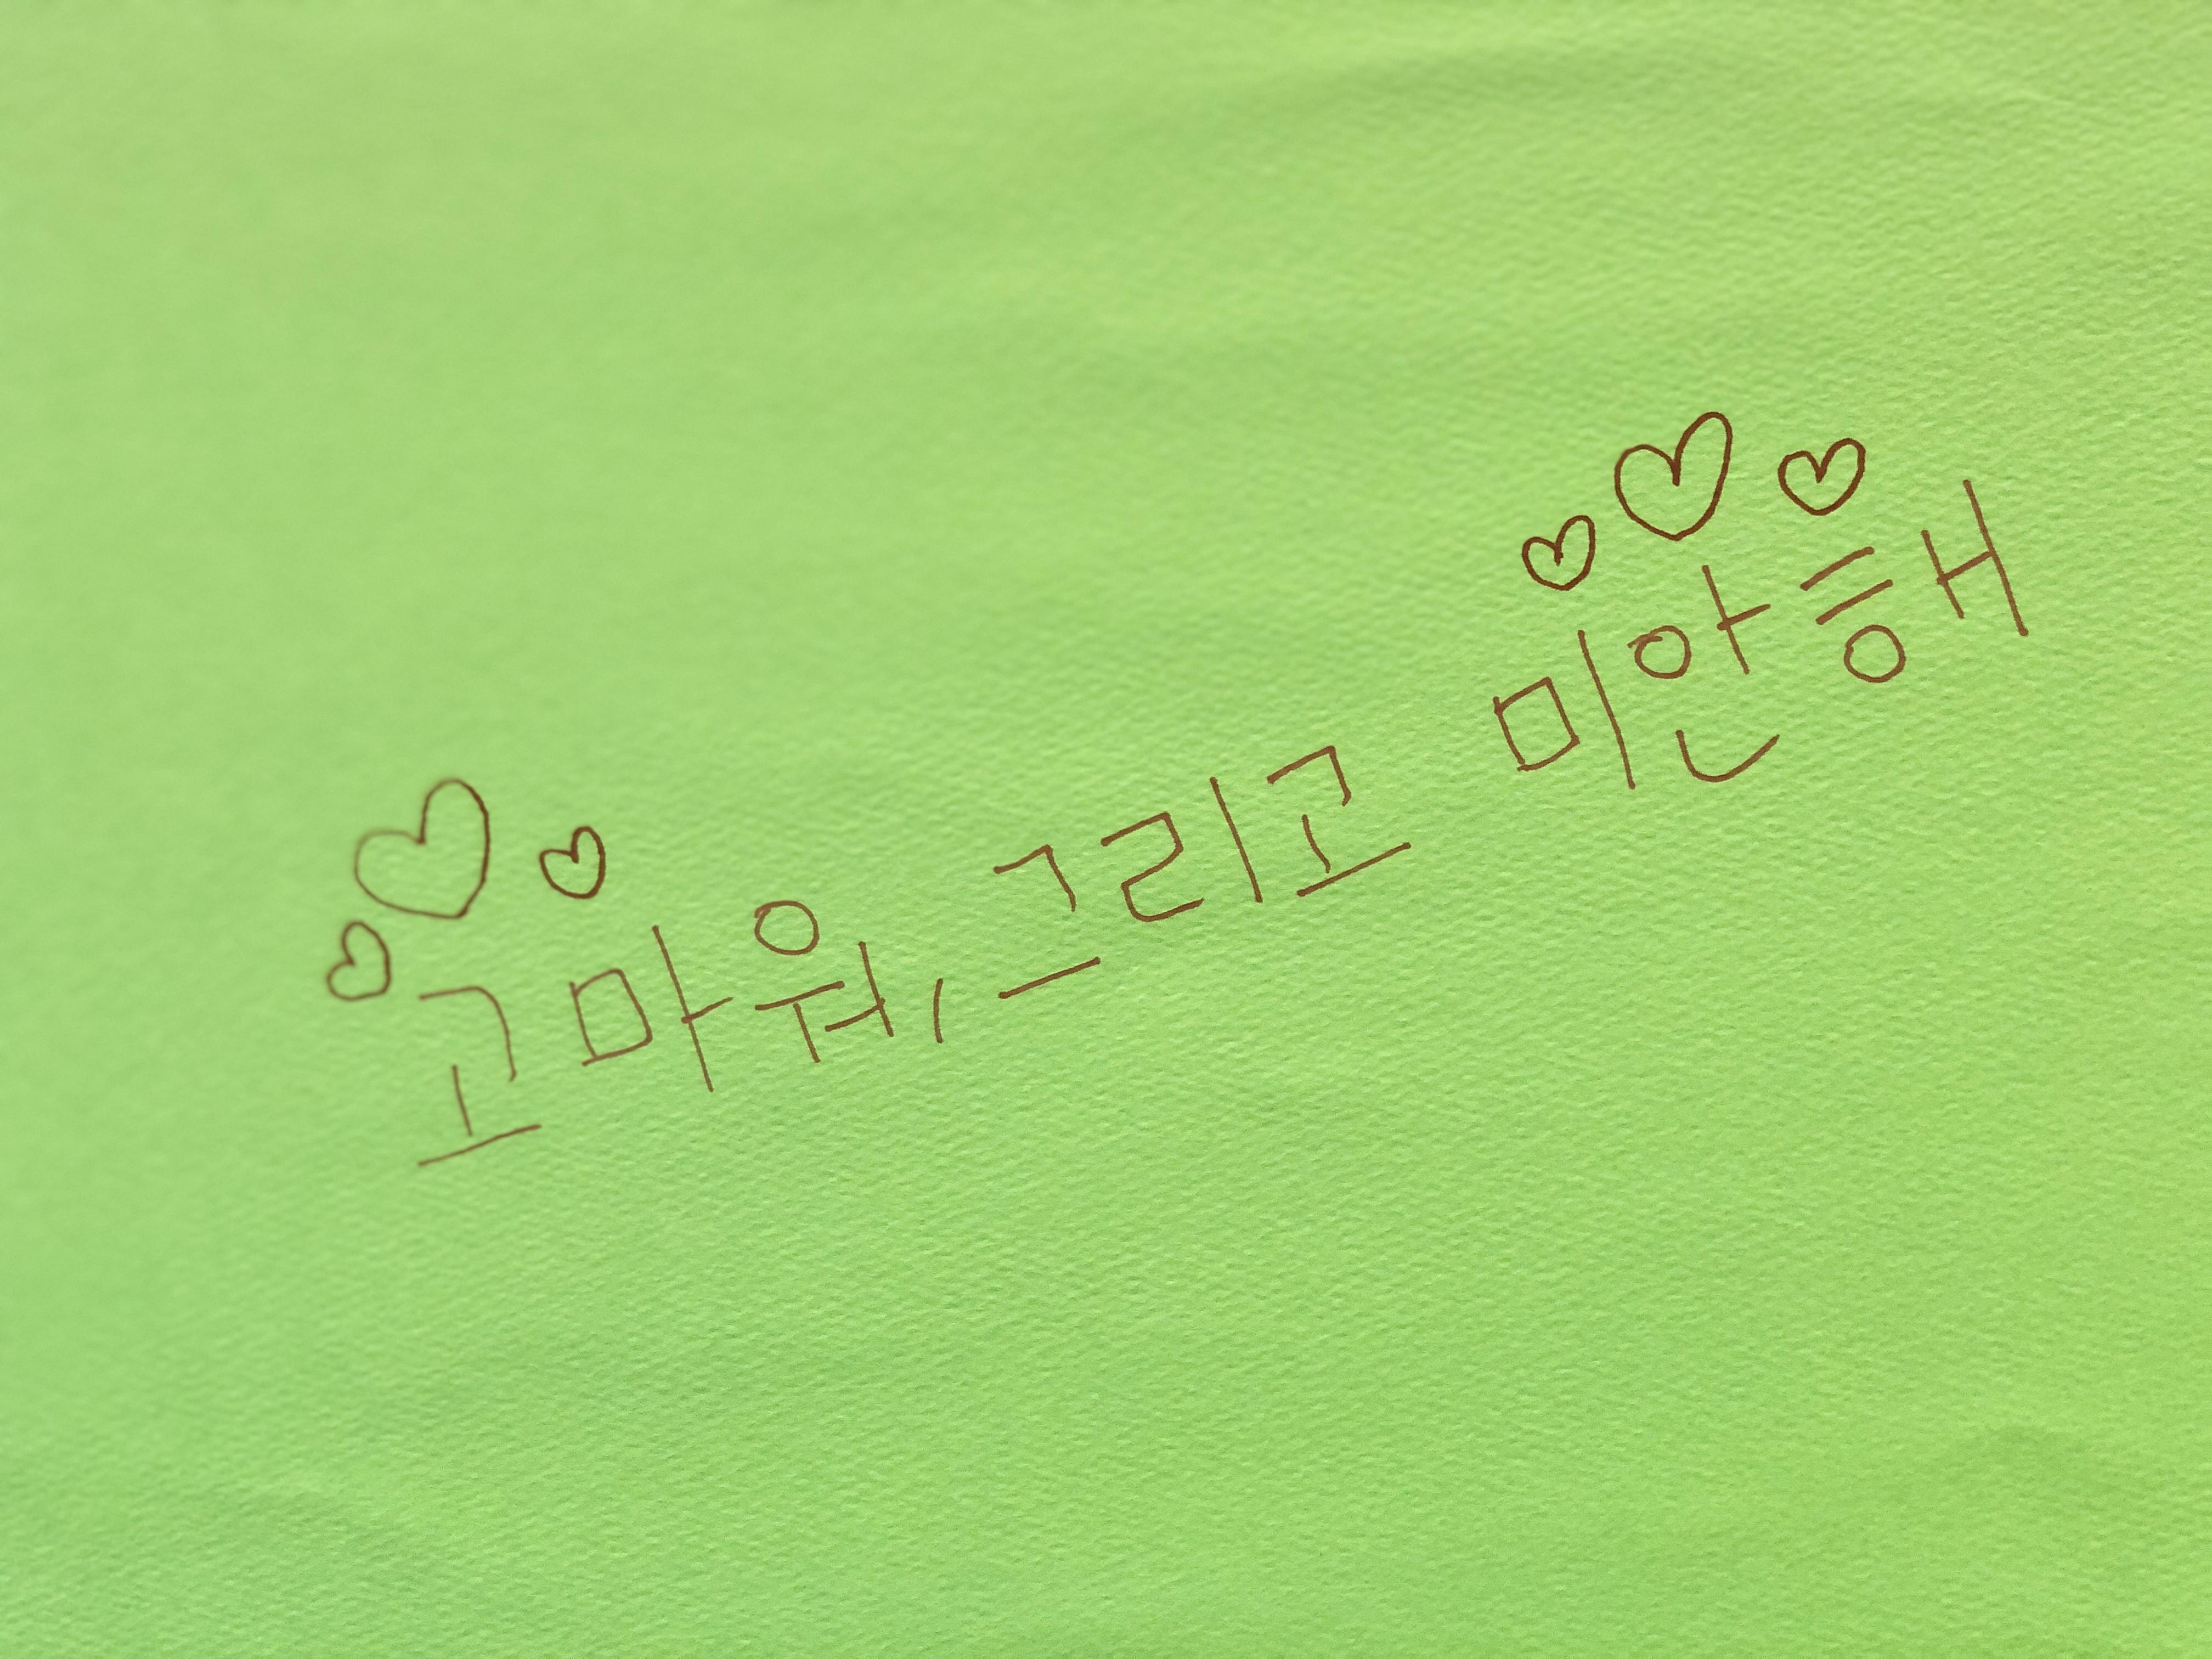 고마워, 그리고 미안해